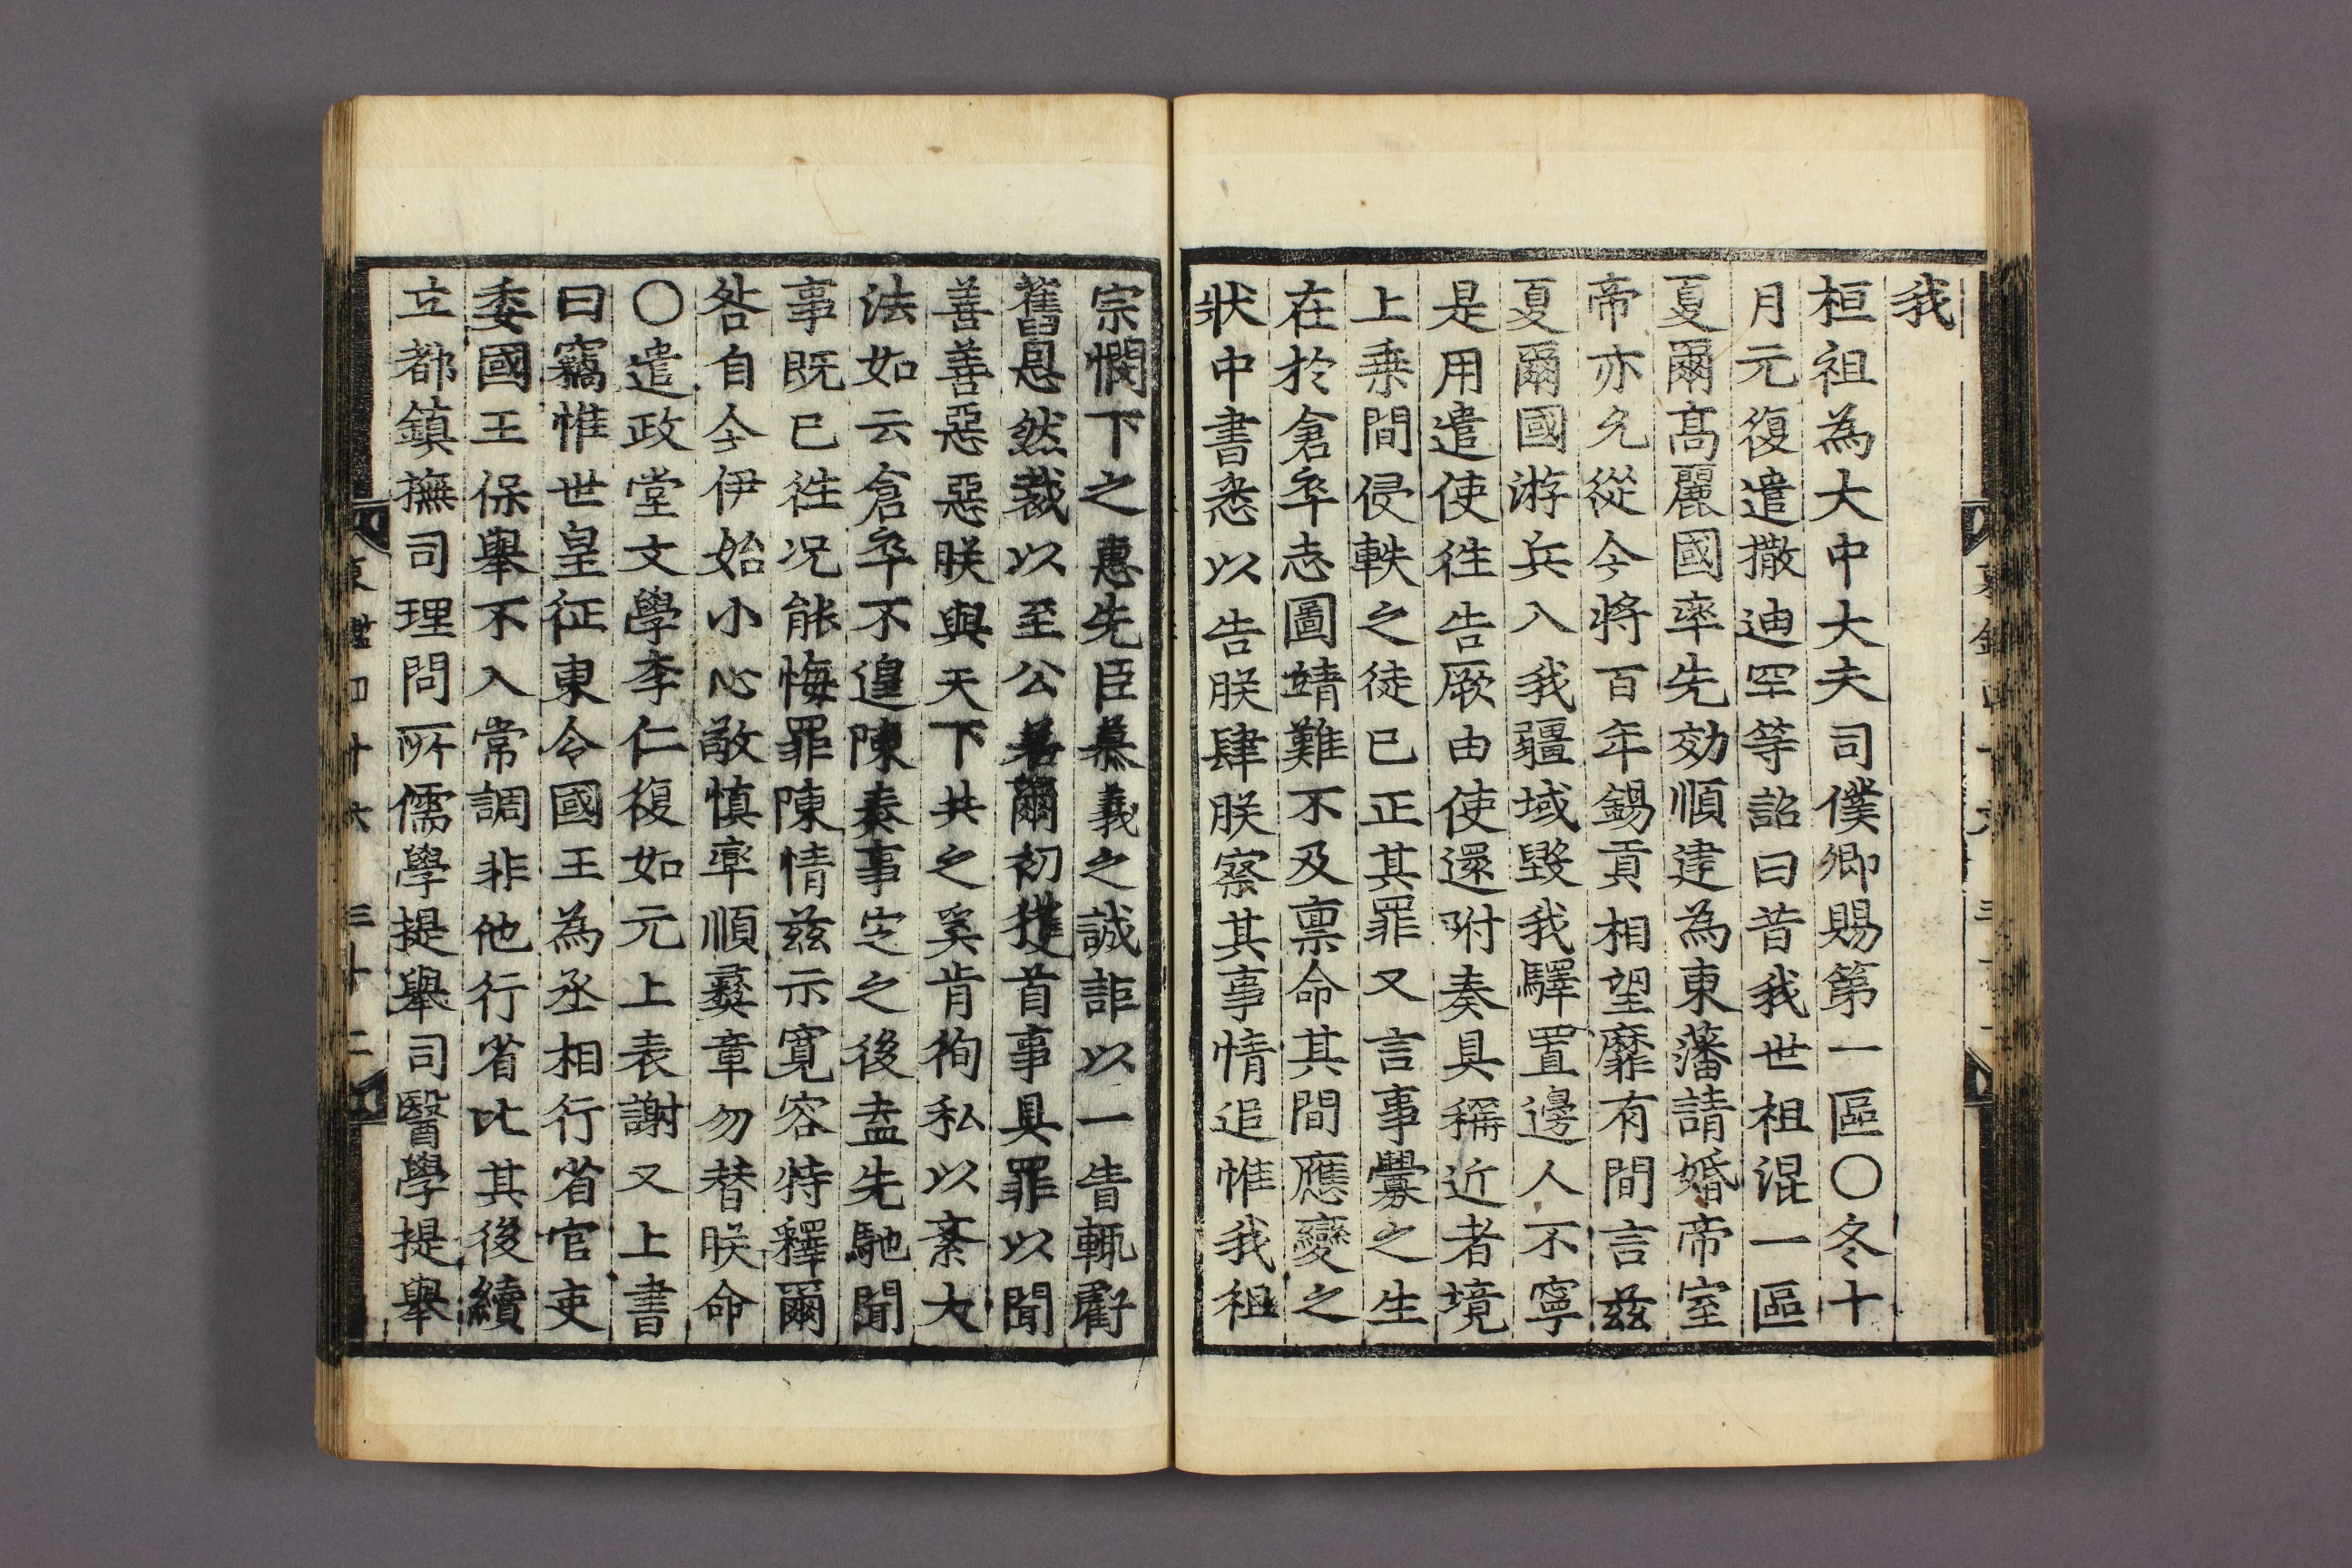 我
桓祖為大中大夫司僕卿賜第一區○冬十
月元復遣撒迪罕等詔曰昔我世祖混一區
夏爾高麗國率先効順建為東藩請婚帝室
帝亦允從今將百年錫貢相望靡有間言茲
夏爾國游兵入我疆域毀我驛置邊人不寧
是用遣使往告厥由使還附奏具稱近者境
上乗間侵軼之徒已正其罪又言事釁之生
在於倉卒志圖靖難不及禀命其間應變之
狀中書悉以告朕肆朕察其事情追惟我祖
宗憫下之惠先臣慕義之誠詎以一眚輒虧
舊恩然裁以至公若爾初獲首事具罪以聞
善善惡惡朕與天下共之奚肯徇私以紊大
法如云倉卒不遑陳奏事定之後盍先馳聞
事既已徃况能悔罪陳情茲示寛容特釋爾
咎自今伊始小心敬慎率順彛章勿替朕命
○遣政堂文學李仁復如元上表謝又上書
曰竊惟世皇征東令國王為丞相行省官吏
委國王保舉不入常調非他行省比其後續
立都鎮撫司理問所儒學提舉司醫學提舉
東鑑四十六 三十二